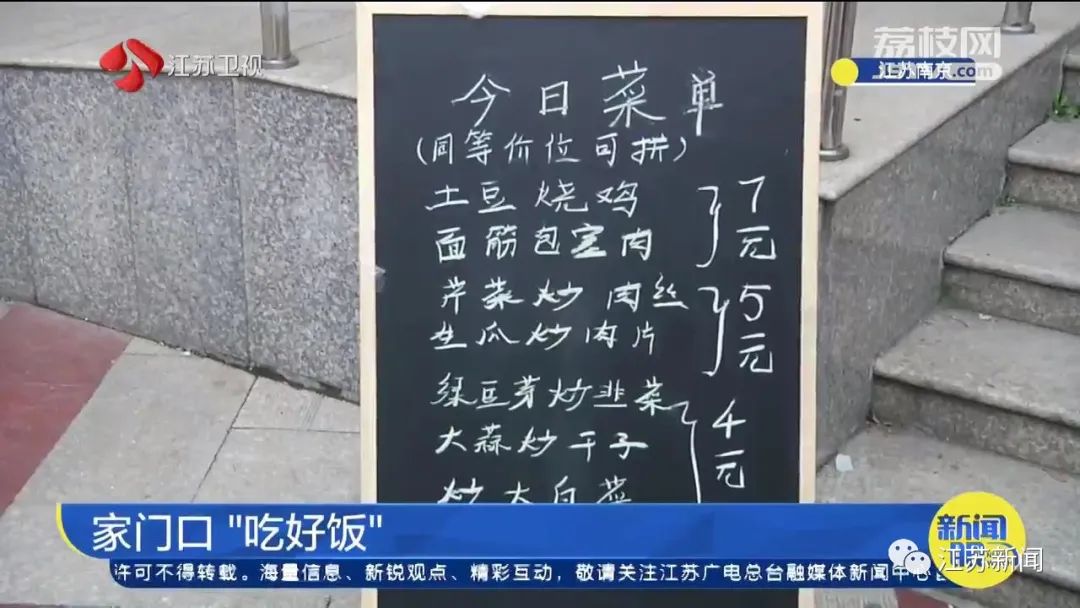 江苏卫视
荔枝网
江苏南京
今日菜单
(同等价位可拼)
土豆烧鸡
面筋包塞肉
7元
芹菜炒肉丝
生瓜炒肉片
5元
绿豆芽炒韭菜
大蒜炒干子
炒大白菜
4元
家门口"吃好饭"
新闻
江苏新闻
许可不得转载。海量信息、新锐观点、精彩互动，敬请关注江苏广电总台融媒体新闻中心